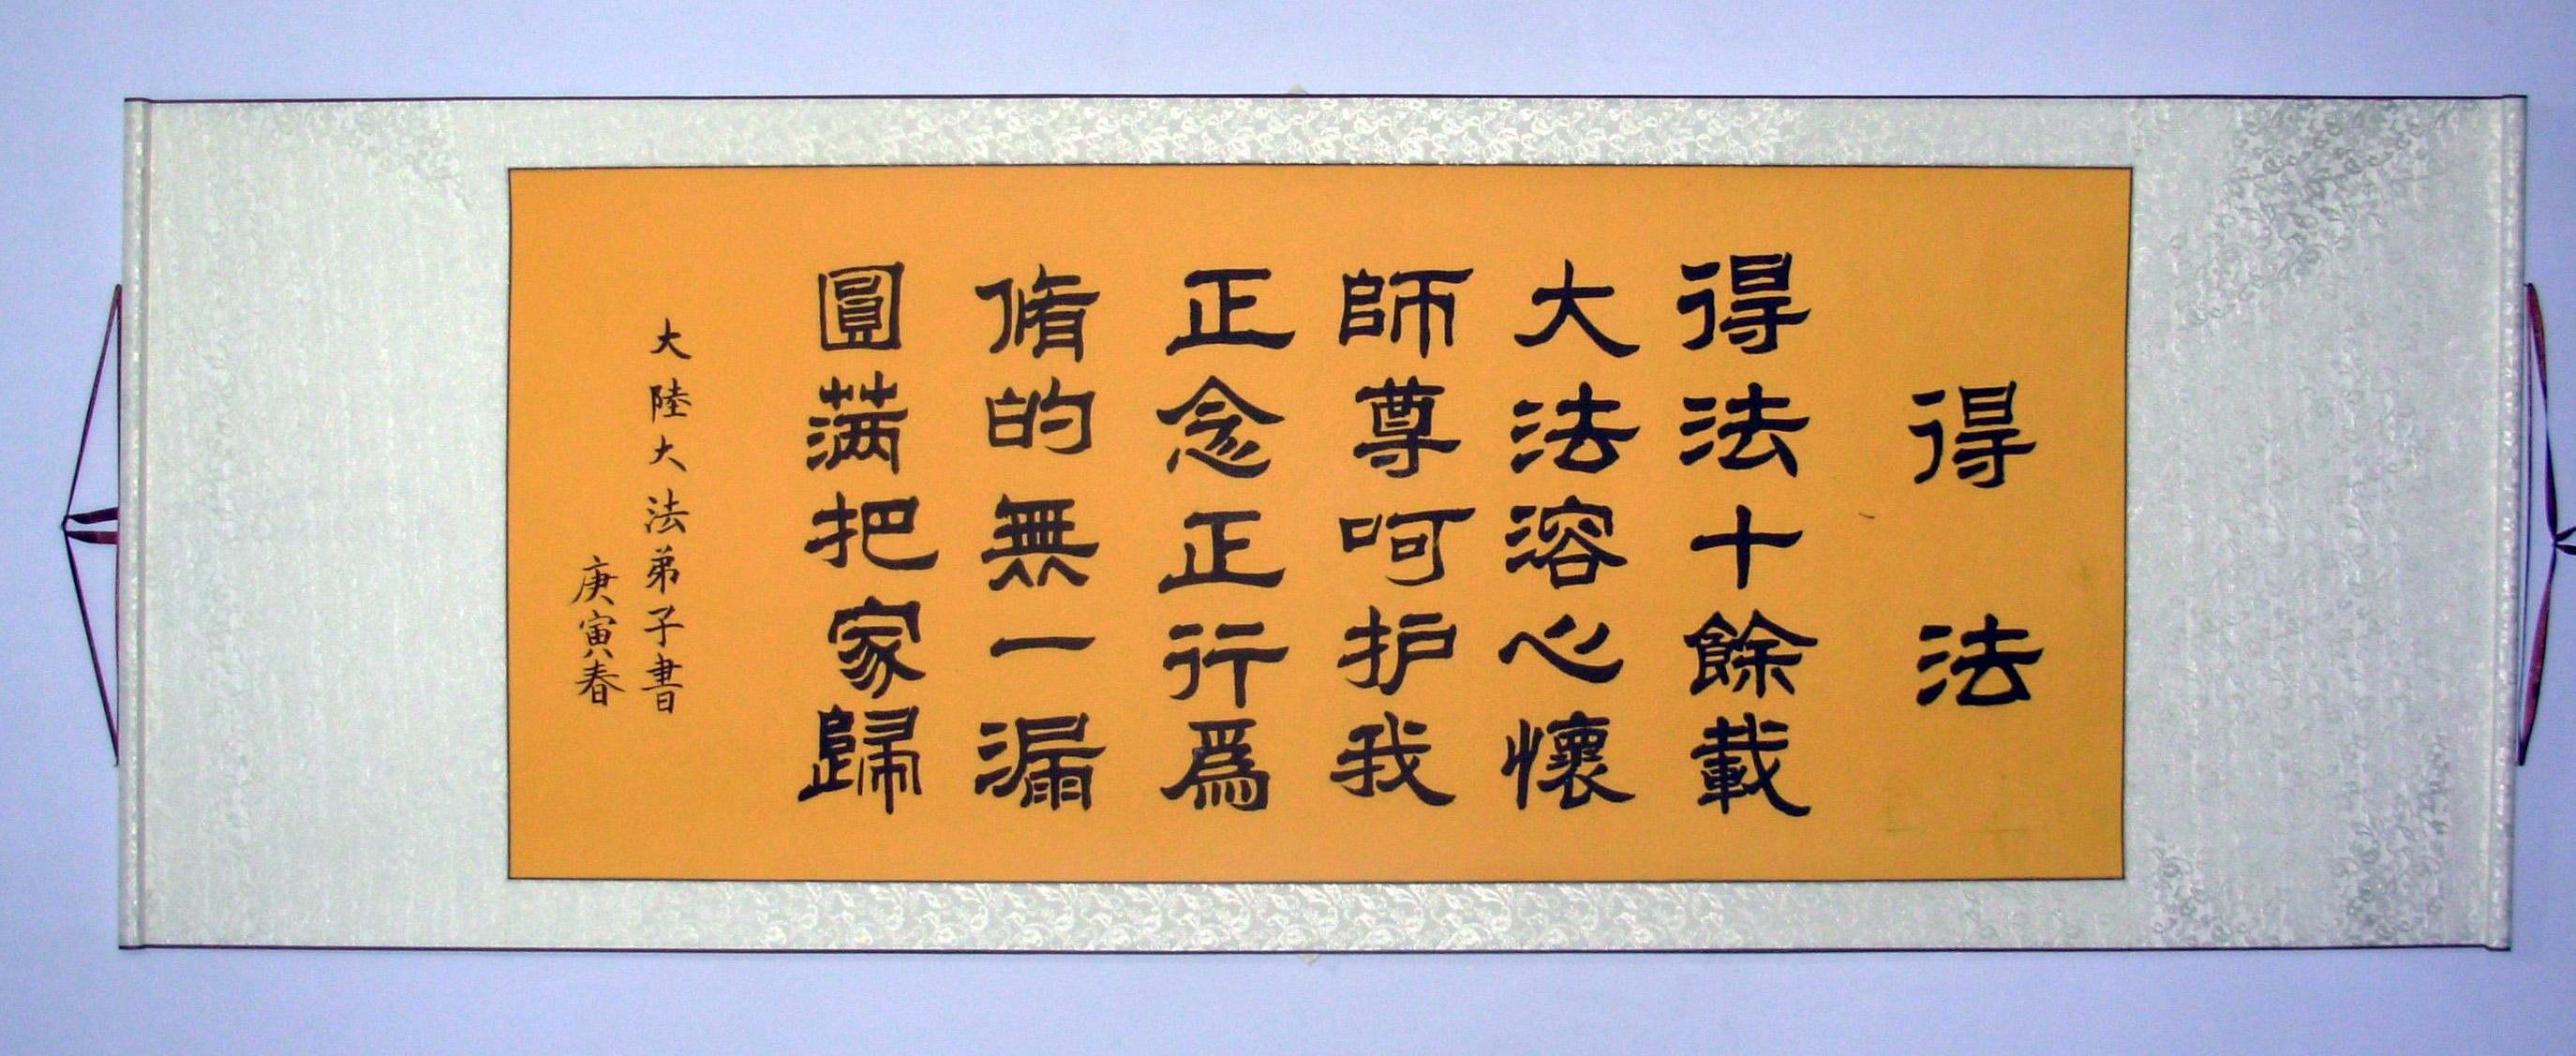 得法
得法十餘載
大法溶心懷
師尊呵护我
正念正行爲
脩的無一漏
圓满把家歸
大陸大法弟子書
庚寅春